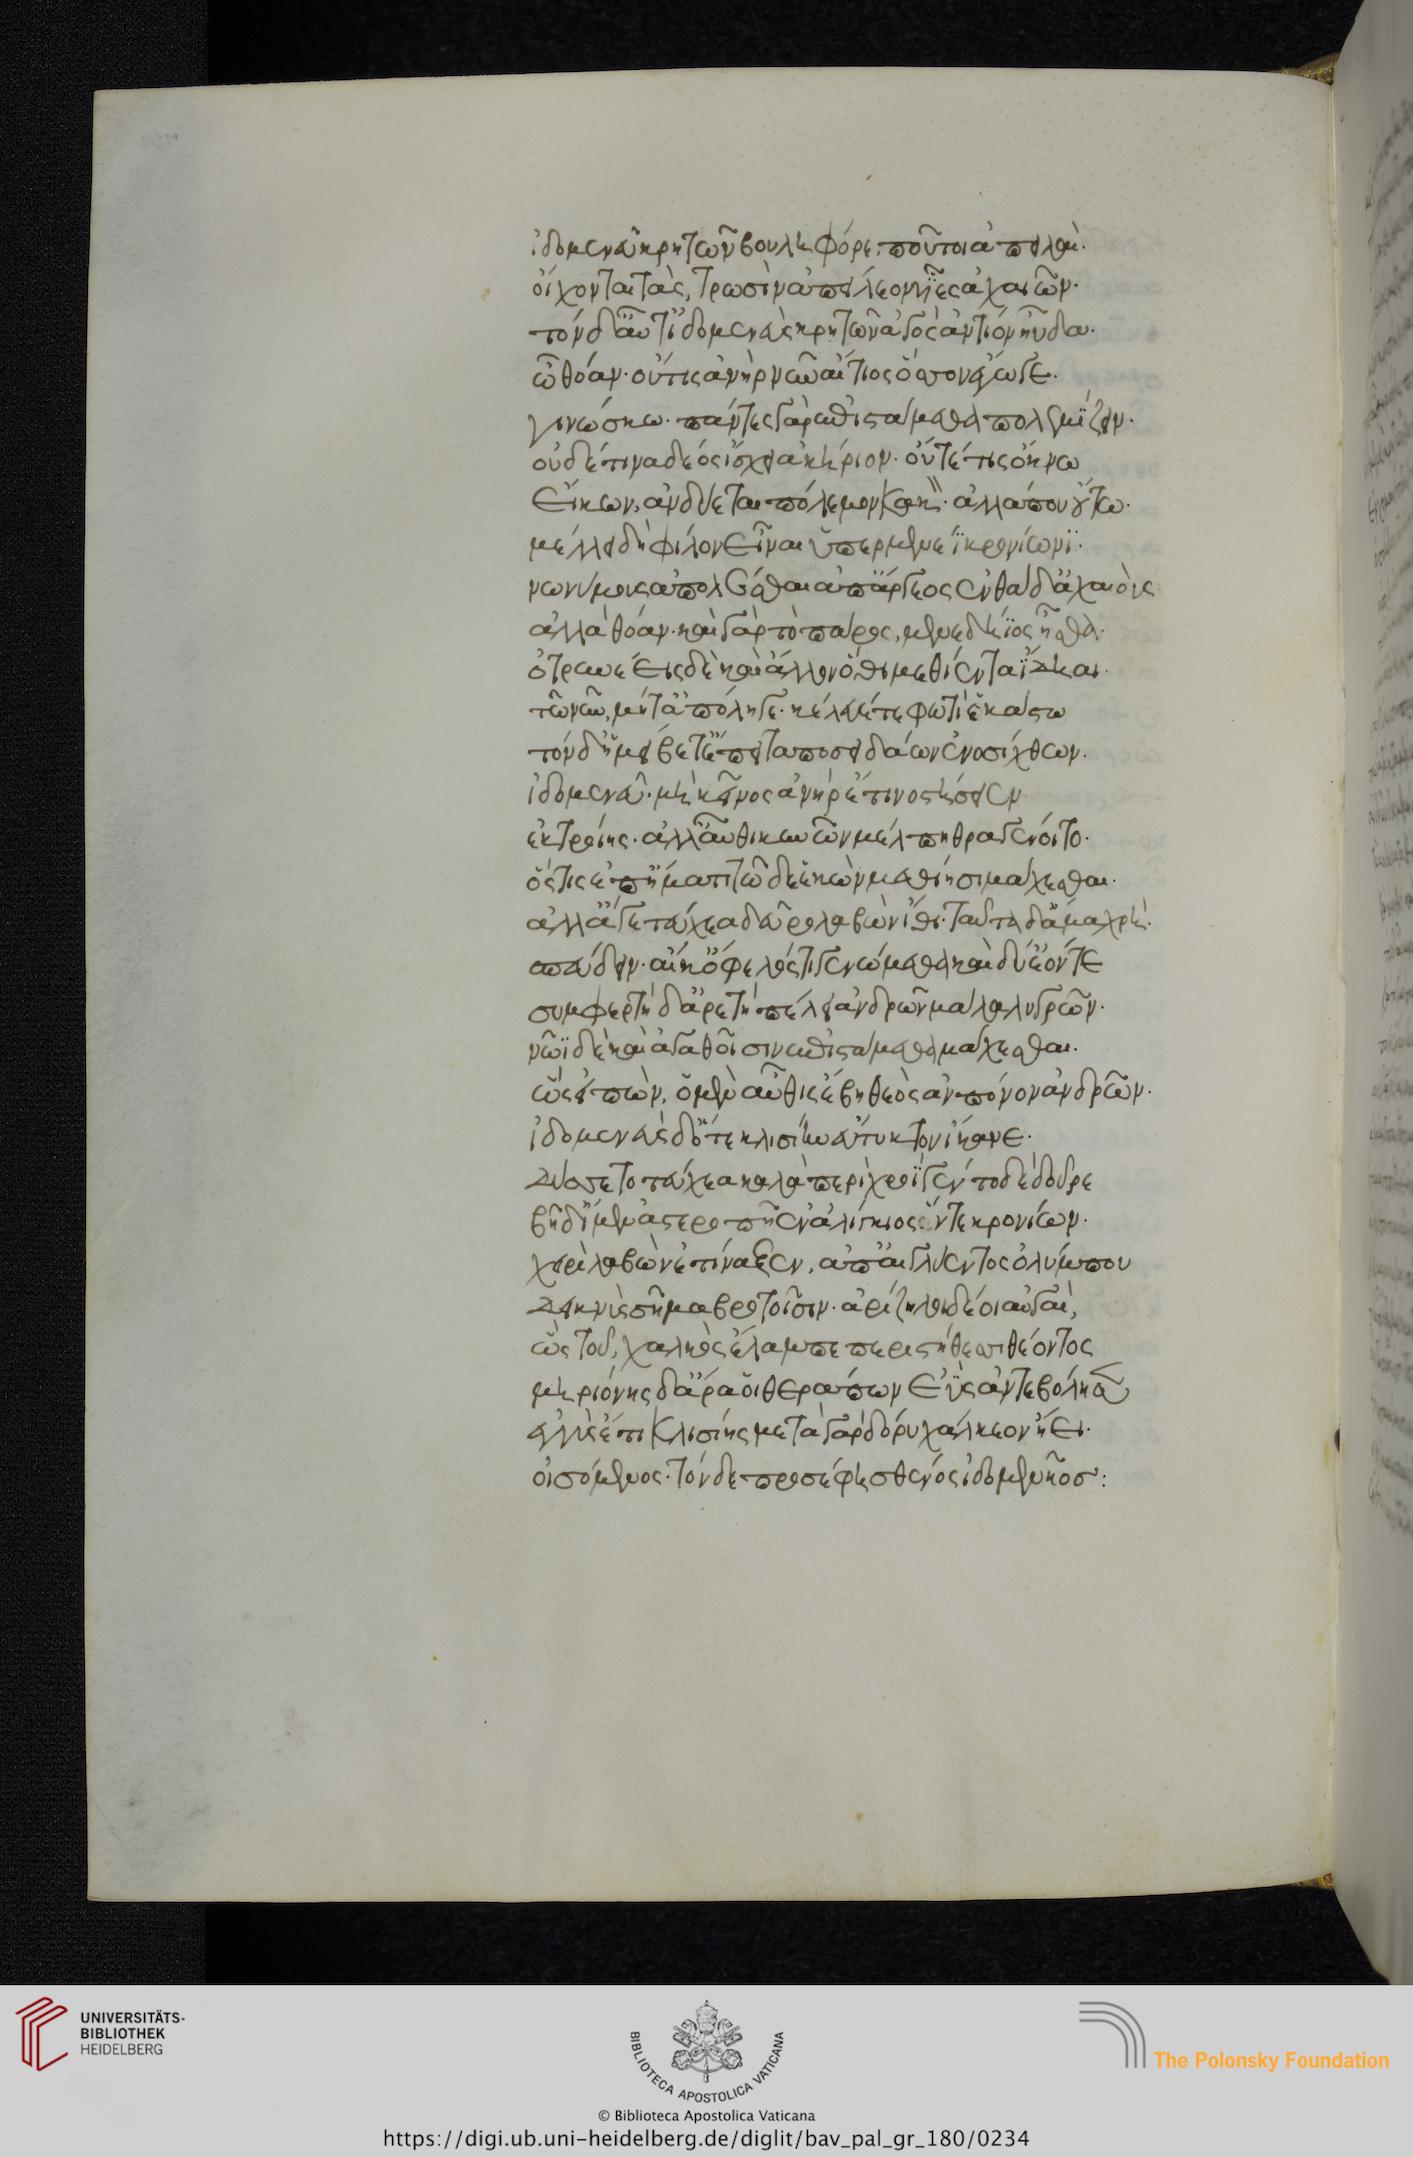 ἰδομενεῦ κρητῶν βουληφόρε, ποῦ τοι ἀπειλαὶ·
οἴχονται τὰς, τρωσὶν ἀπείλεον υἷες ἀχαιῶν·
τόν δ' αὖτ' ἰδομενεὺς κρητῶν ἀγὸς ἀντίον ηὔδα·
ὦ θόαν· οὔτις ἀνὴρ νῦν αἴτιος ὅσσον ἔγωγε·
γινώσκω· πάντες γὰρ ἐπιστάμεθα πολεμίζειν·
οὐδέ τινα δέος ἴσχει ἀκήριον· οὔτέ τις ὄκνω
εἴκων, ἀνδύεται πόλεμον κακὸν· ἀλλά που οὕτω·
μέλλει δὴ φίλον εἶναι ὑπερμενέϊ κρονίωνϊ·
νωνύμους ἀπολέσθαι ἀπ' ἄργεος ἐνθάδ' ἀχαιούς
ἀλλὰ θόαν· καὶ γὰρ τὸ πάρος, μενεδήϊος ἦσθα·
ὀτρύνεις δὲ καὶ ἄλλον ὅθι μεθιέντα ἴδηαι·
τῶ νῦν, μήτ' ἀπόληγε· κέλευέ τε φωτὶ ἑκάστω
τόν δ' ἠμείβετ' ἔπειτα ποσειδάων ἐνοσίχθων·
ἰδομενεῦ· μὴ κεῖνος ἀνὴρ ἔτι νοστήσειεν
ἐκ τροίης· ἀλλ' αὖθι κυνῶν μέλπηθρα γένοιτο·
ὅστις ἐπ' ἤματι τῶδε ἑκὼν μεθίησι μάχεσθαι·
ἀλλ' ἄγε τεύχεα δεῦρο λαβὼν ἴθι· ταῦτα δ' ἅμα χρὴ·
σπεύδειν· αἴ κ' ὄφελός τι γενώμεθα καὶ δύ' ἐόντε
συμφερτὴ δ' ἀρετὴ πέλει ἀνδρῶν μάλα λυγρῶν·
νῶϊ δὲ καὶ ἀγαθοῖσιν ἐπιστάμεθα μάχεσθαι·
ὣς εἰπὼν, ὁ μὲν αὖθις ἔβη θεὸς ἂν πόνον ἀνδρῶν·
ἰδομενεὺς δ' ὅτε κλισίην εὔτυκτον ἵκανε·
δύσετο τεύχεα καλὰ περὶ χροῒ γέντο δὲ δοῦρε
βῆ δ' ἴμεν ἀστεροπῆ ἐναλίγκιος ἥντε κρονίων·
χειρὶ λαβὼν ἐτίναξεν, ἀπ' αἰγλήεντος ὀλύμπου
δεικνὺς σῆμα βροτοῖσιν· ἀρίζηλοι δέ οἱ αὐγαὶ,
ὣς τοῦ, χαλκὸς ἔλαμπε περὶ στήθεσσι θέοντος
μηριόνης δ' ἄρα οἱ θεράπων ἐὺς ἀντεβόλησεν
ἐγγὺς ἔτι κλισίης μετὰ γὰρ δόρυ χάλκεον ἤει·
οἰσόμενος· τόνδε προσέφη σθένος ἰδομενῆος:
UNIVERSITÄTS-
BIBLIOTHEK
HEIDELBERG
BIBLIOTECA APOSTOLICA VATICANA
The Polonsky Foundation
© Biblioteca Apostolica Vaticana
https://digi.ub.uni-heidelberg.de/diglit/bav_pal_gr_180/0234